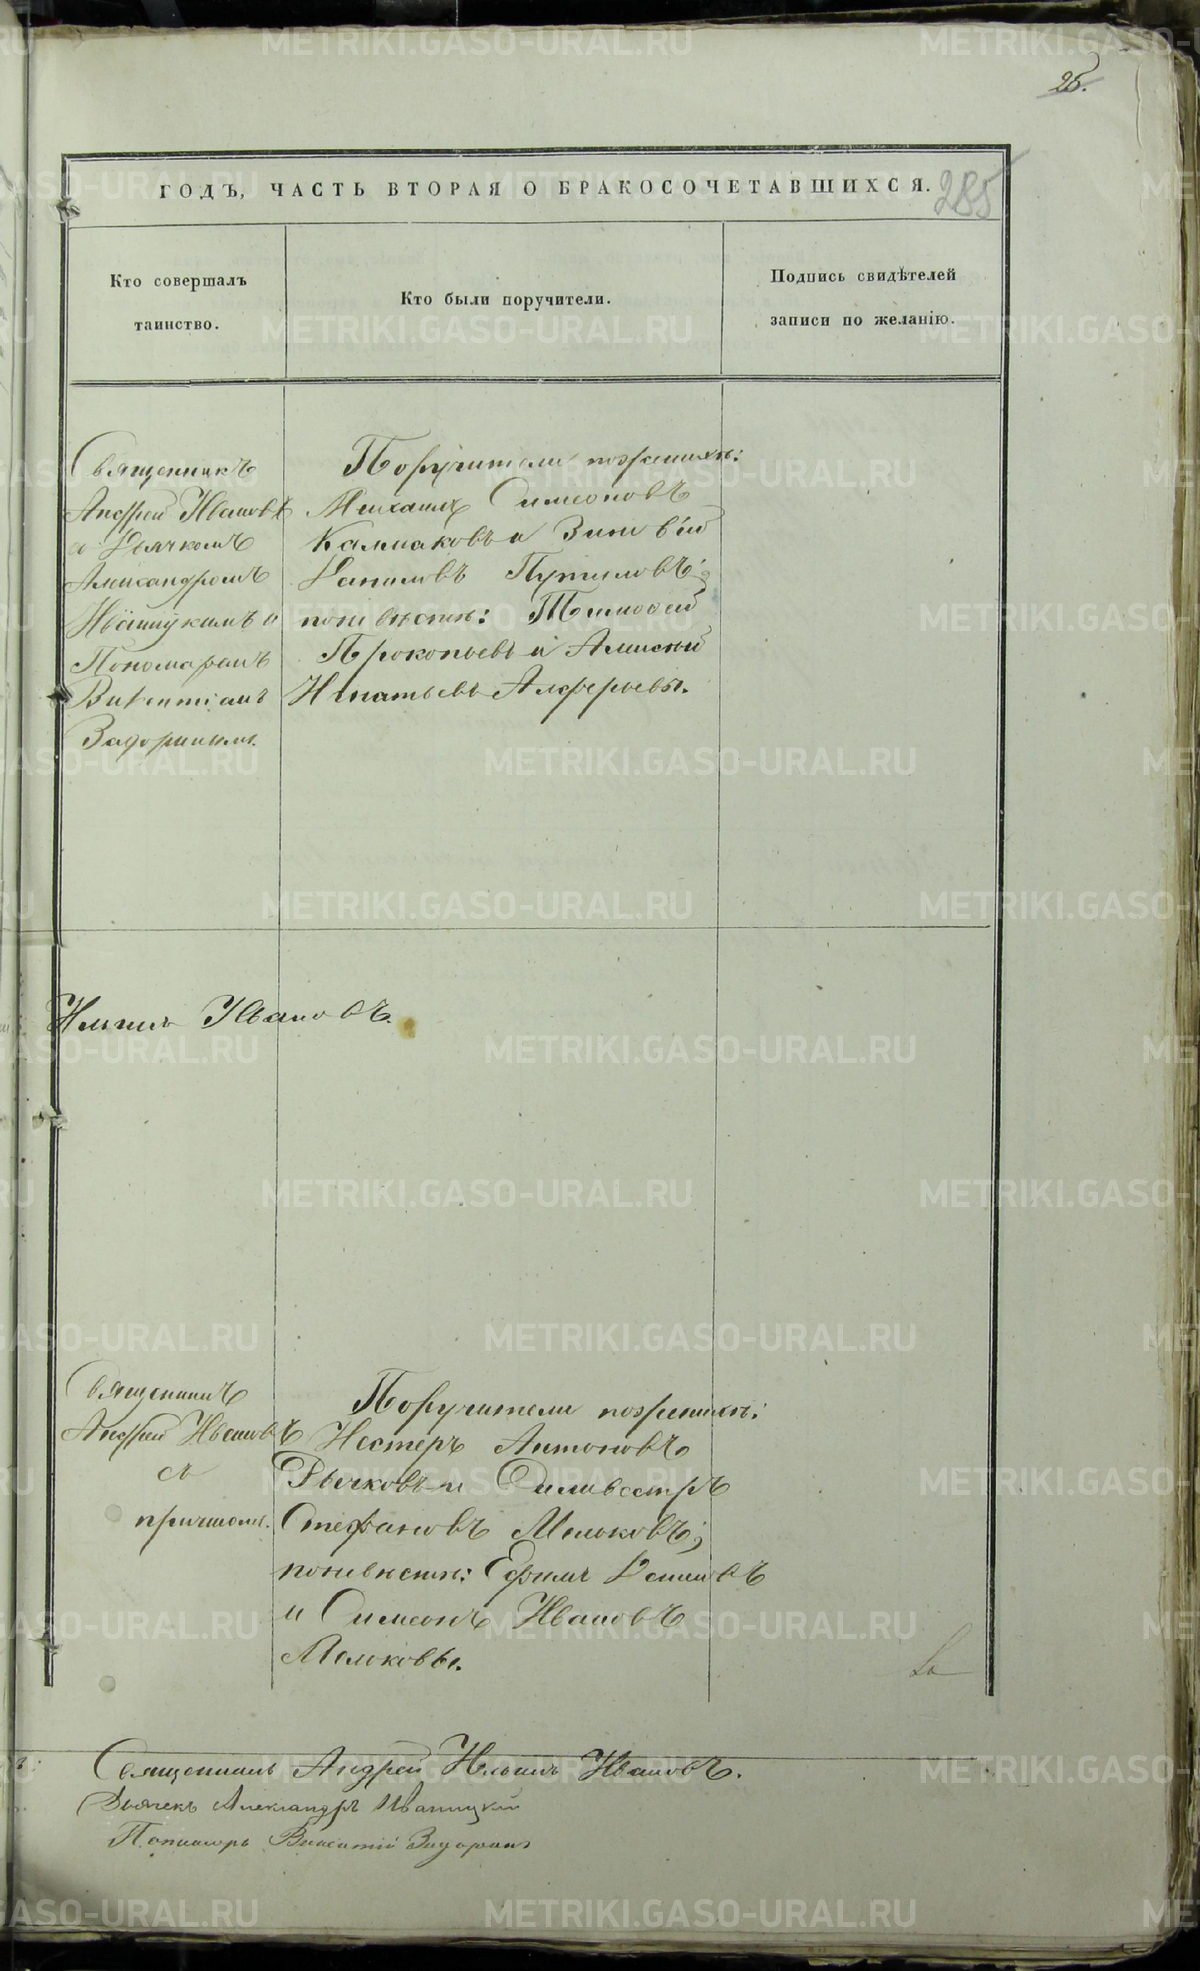 25.
ГОДЪ, ЧАСТЬ ВТОРАЯ О БРАКОСОЧЕТАВШИХСЯ.
285
Кто совершалъ
таинство.
Кто были поручители.
Подпись свидѣтелей
записи по желанію.
Священникъ
Андрей Ивановъ
с Дьячкомъ
Александромъ
Иваницкимъ и
Пономаремъ
Викентіемъ
Задоринымъ.
Поручители по женихѣ:
Михаилъ Симеоновъ
Калмаковъ и Зиновій
Даниловъ Путиловъ;
по невѣстѣ: Тимофей
Прокопьевъ и Алексѣй
Игнатьевъ Алферьевы.
Ильинъ Ивановъ.
Священникъ
Андрей Ивановъ
съ
причтомъ.
Поручители по женихѣ:
Нестеръ Антоновъ
Рычковъ и Сильвестръ
Стефановъ Мельковъ;
по невѣстѣ: Ефимъ
и Симеонъ Ивановъ
Священникъ Андрей Ильинъ Ивановъ.
Дьячекъ Александръ Иваницкій
Пономарь Викентій Задоринъ
METRIKI.GASO-URAL.RU